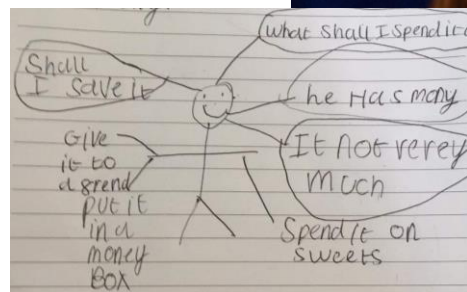 what shall I spend it
Shall
I save it
he Has mony
It Not verey
much
Give
it to
a grend
put it
in a
money
Box
Spend it on
sweets